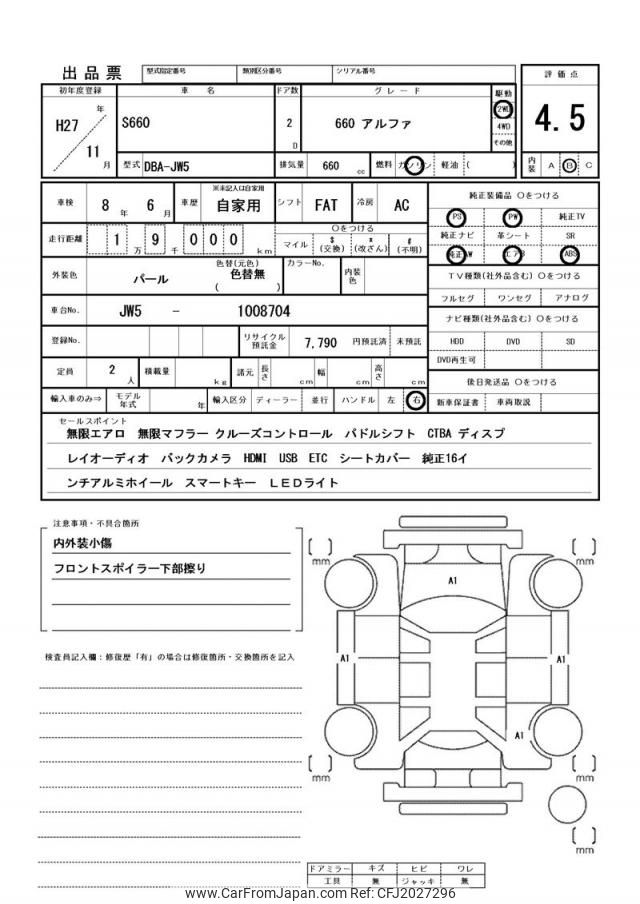 出品票 型式指定番号 類別区分番号 シリアル番号
初年度登録 車名 ドア数 グレード 駆動 評価点
H27 年 11 月 S660 2 D 660 アルファ 2WD 4WD その他 4.5
型式 DBA-JW5 排気量 660 cc 燃料 ガソリン 軽油 ( ) 内装 A B C
車検 8 年 6 月 車歴 ※未記入は自家用 自家用 シフト FAT 冷房 AC 純正装備品 ○をつける
PS PW 純正TV
走行距離 1 万 9 千 0 0 0 km ○をつける マイル $ (交換) * (改ざん) # (不明) 純正ナビ 革シート SR
純正AW エアB ABS
外装色 パール 色替(元色) 色替無 ( ) カラーNo. 内装色 TV種類(社外品含む) ○をつける
フルセグ ワンセグ アナログ
車台No. JW5 - 1008704 ナビ種類(社外品含む) ○をつける
登録No. リサイクル預託金 7,790 円預託済 未預託 HDD DVD SD
DVD再生可
定員 2 人 積載量 kg 諸元 長さ cm 幅 cm 高さ cm 後日発送品 ○をつける
輸入車のみ⇒ モデル年式 年 輸入区分 ディーラー 並行 ハンドル 左 右 新車保証書 車両取説
セールスポイント
無限エアロ 無限マフラー クルーズコントロール パドルシフト CTBA ディスプ
レイオーディオ バックカメラ HDMI USB ETC シートカバー 純正16イ
ンチアルミホイール スマートキー LEDライト
注意事項・不具合箇所
内外装小傷
フロントスポイラー下部擦り
検査員記入欄:修復歴「有」の場合は修復箇所・交換箇所を記入
mm mm
A1
A1 A1
A1
mm mm
mm
ドアミラー キズ ヒビ ワレ
工具 無 ジャッキ 無
www.CarFromJapan.com Ref: CFJ2027296